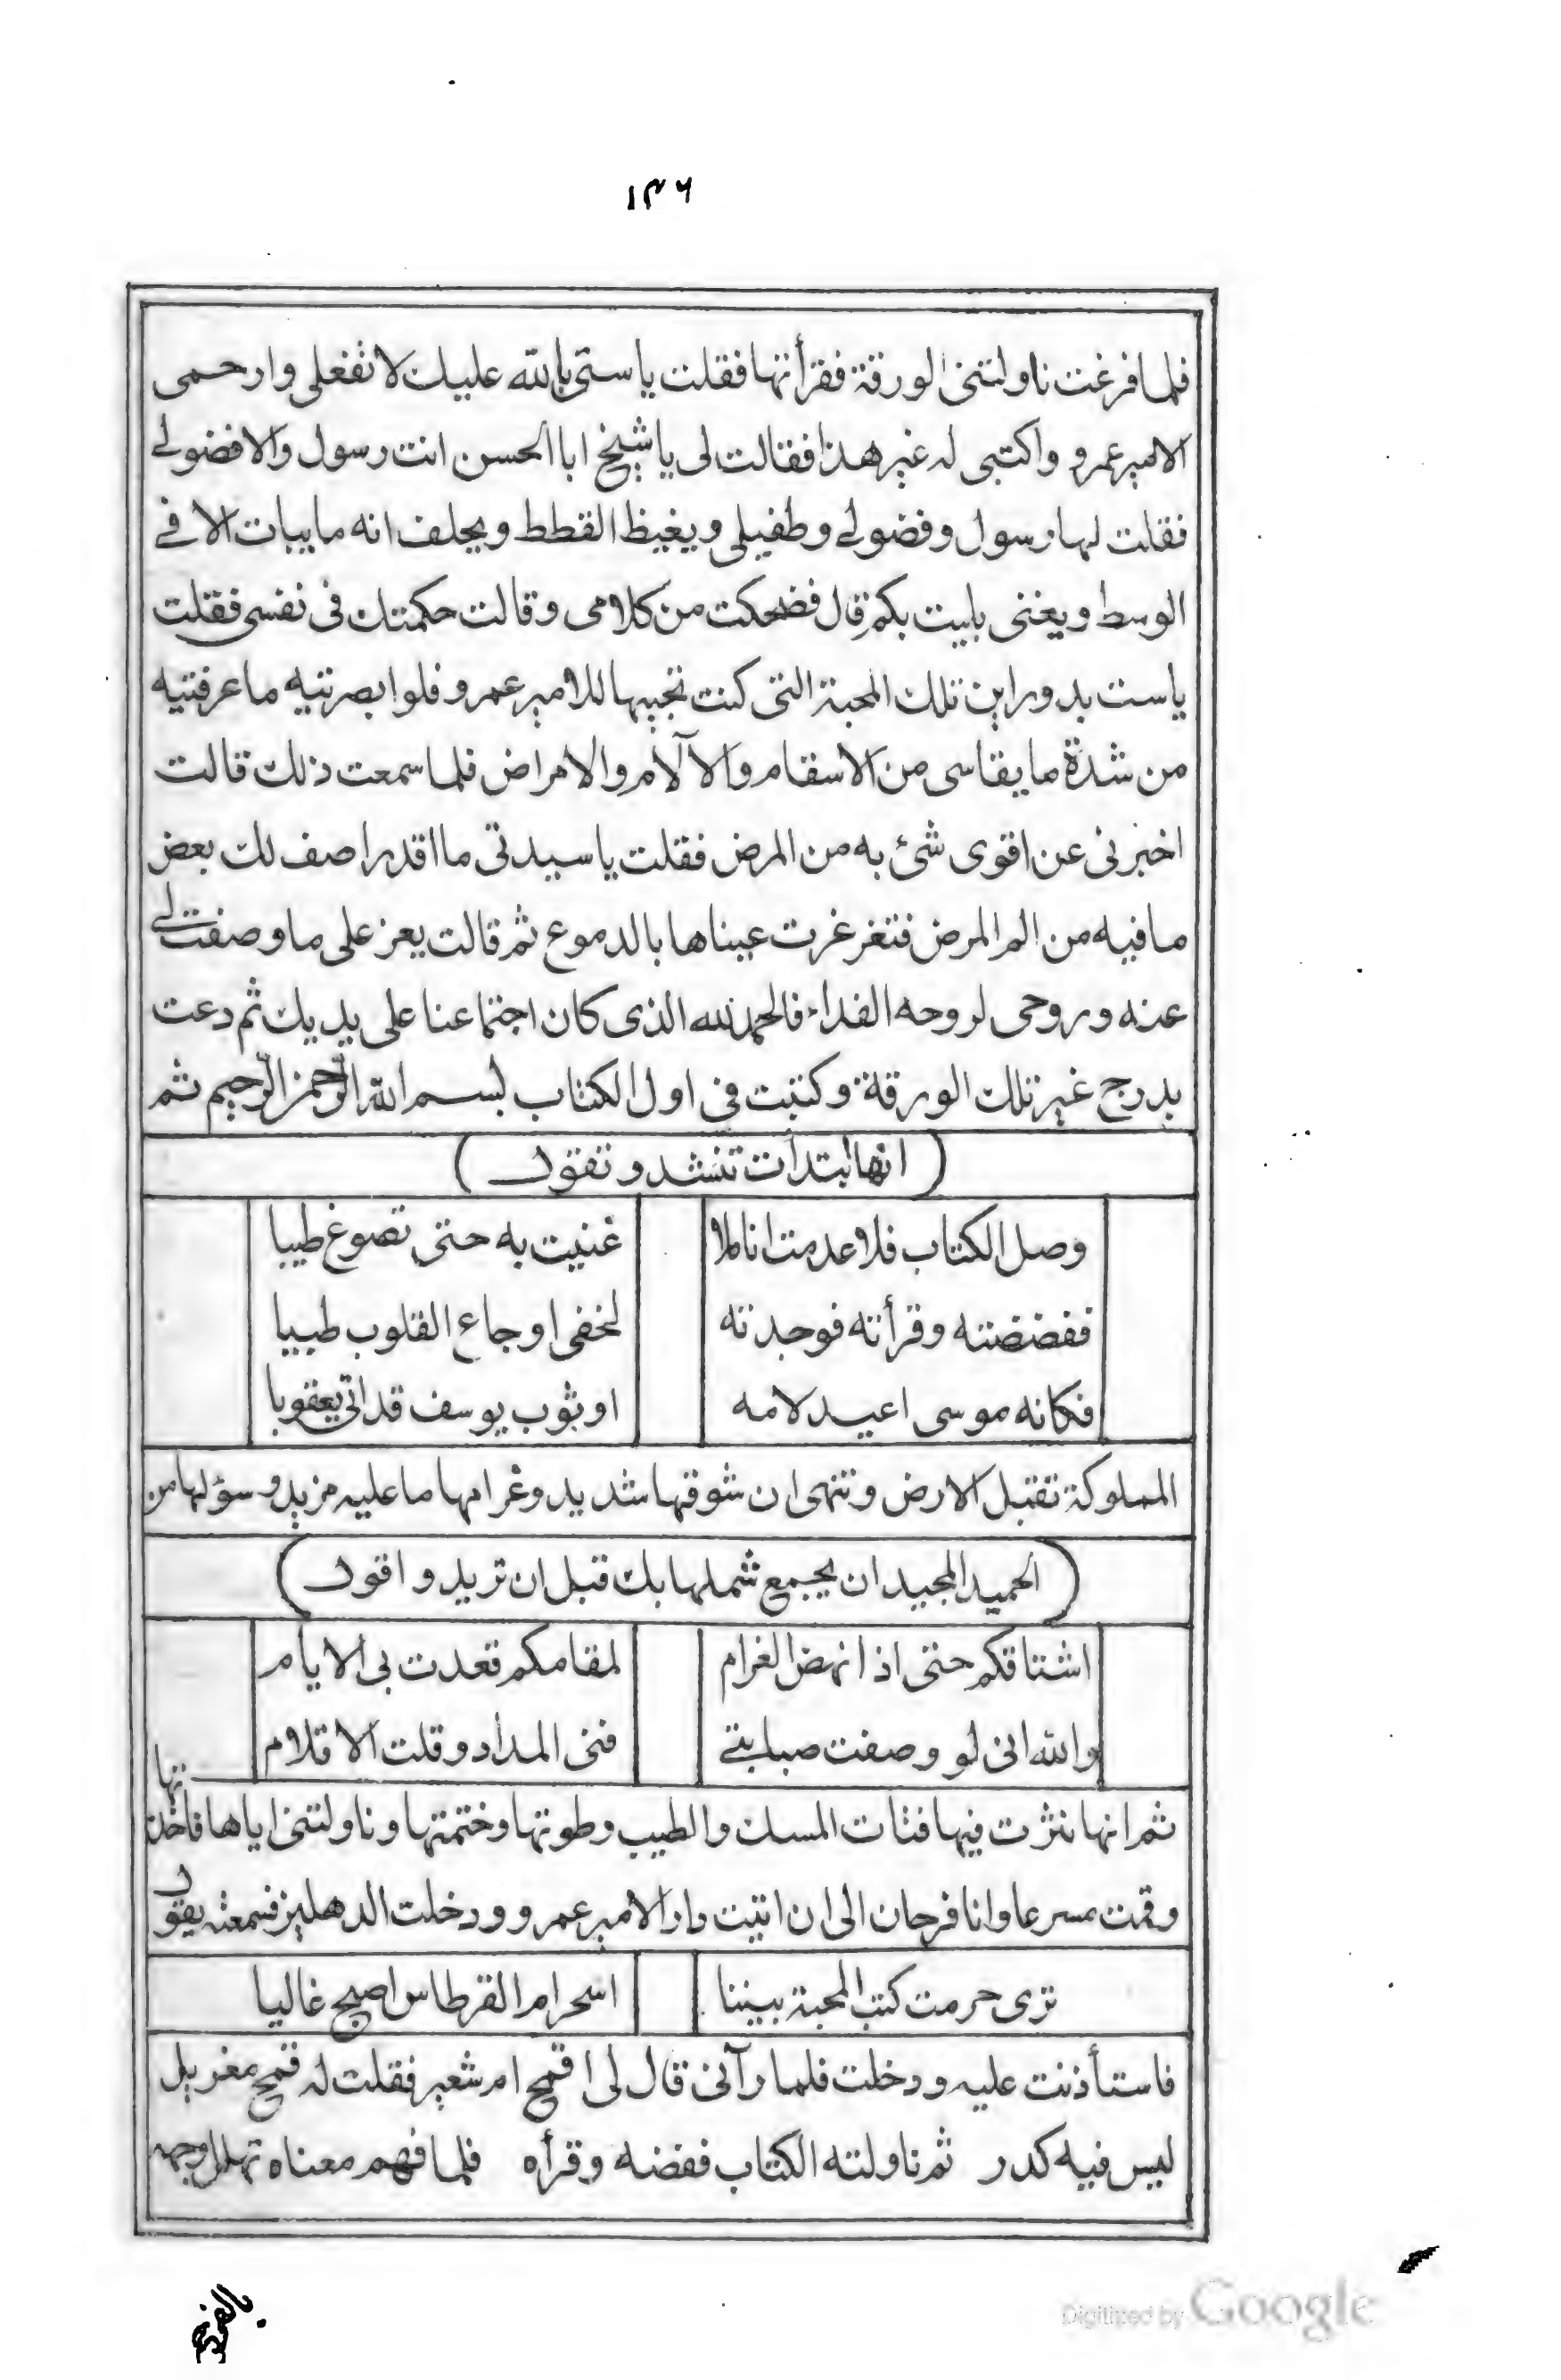 ١٣٦
فلما فرغت ناولتنى الورقة فقرأتها فقلت يا ستى بالله عليك لا تفعلى وارحمى
الامير عمرو واكتبى له غير هذا فقالت لى يا شيخ ابا الحسن انت رسول والا فضولى
فقلت لها رسول وفضولى وطفيلى ويغيظ القطط ويحلف انه ما يبات الا فى
الوسط ويغنى بابيت بكم قال فضحكت من كلامى وقالت حكمتك فى نفسى فقلت
يا ست بدور اين تلك المحبة التى كنت تحبيها للامير عمرو فلو ابصرتيه ما عرفتيه
من شدة ما يقاسى من الاسقام والآلام والامراض فلما سمعت ذلك قالت
اخبرنى عن اقوى شئ به من المرض فقلت يا سيدتى ما اقدر اصف لك بعض
ما فيه من الم المرض فتغرغرت عيناها بالدموع ثم قالت يعز على ما وصفت لى
عنه وروحى لروحه الفداء فالحمد لله الذى كان اجتماعنا على يديك ثم دعت
بدرج غير تلك الورقة وكتبت فى اول الكتاب بسم الله الرحمن الرحيم ثم
( انها ابتدأت تنشد وتقول )
وصل الكتاب فلا عدمت اناملا غنيت به حتى تضوغ طيبا
ففضضته وقرأته فوجدته لخفى اوجاع القلوب طبيبا
فكانه موسى اعيد لامه او ثوب يوسف قد اتى يعقوبا
المملوكة تقبل الارض وتنهى ان شوقها شديد وغرامها ما عليه مزيد وسؤلها من
( الحميد المجيد ان يجمع شملها بك قبل ان تريد واقول )
اشتاقكم حتى اذا نهض الغرام لمقامكم قعدت بى الايام
والله انى لو وصفت صبابتى فنى المداد وقلت الاقلام
ثم انها نثرت فيها فتات المسك والطيب وطوتها وختمتها وناولتنى اياها فاخذتها
وقمت مسرعا وانا فرحان الى ان اتيت دار الامير عمرو ودخلت الدهليز فسمعته يقول
ترى حرمت كتب المحبة بيننا اسحرام القرطاس اصبح غاليا
فاستأذنت عليه ودخلت فلما رآنى قال لى اقمح ام شعير فقلت له قمح مغربل
ليس فيه كدر ثم ناولته الكتاب ففضه وقرأه فلما فهم معناه تهلل وجهه
بالفرح
Digitized by Google